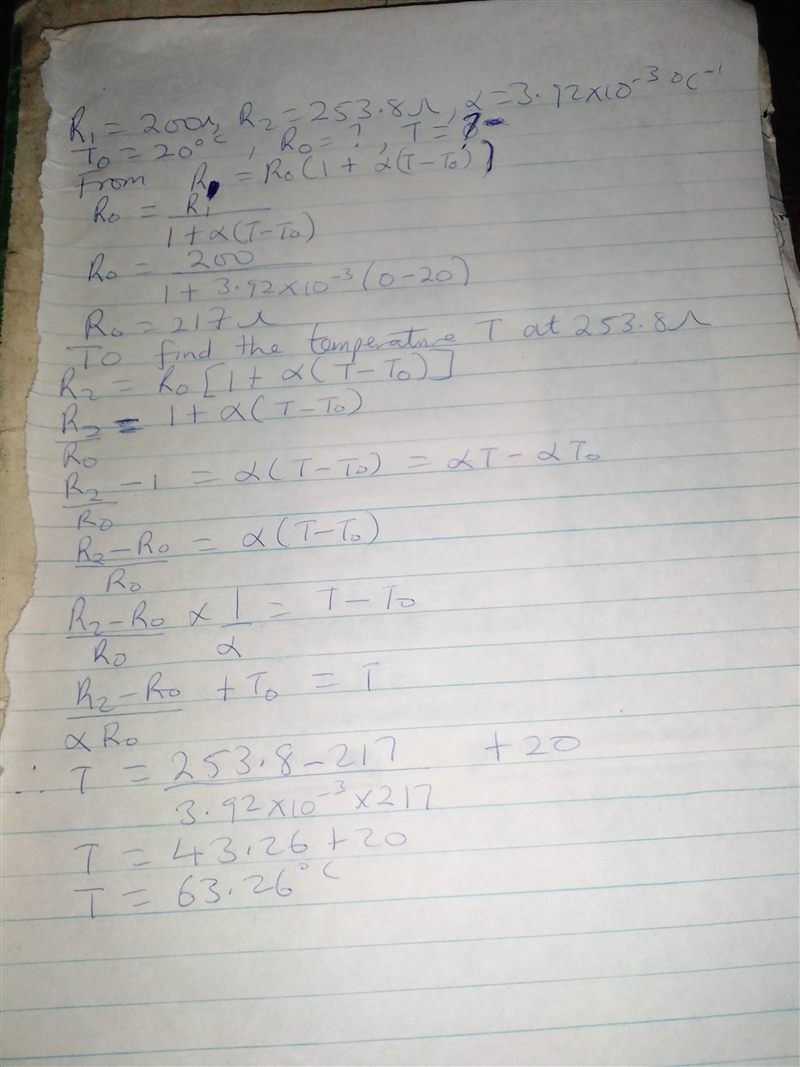 R₁ = 200Ω, R₂ = 253.8Ω, α = 3.92×10⁻³ °C⁻¹
T₀ = 20°C, R₀ = ?, T = ?
From R = R₀(1 + α(T-T₀)]
R₀ = R₁ / 1 + α(T-T₀)
R₀ = 200 / 1 + 3.92×10⁻³(0-20)
R₀ = 217Ω
To find the temperature T at 253.8Ω
R₂ = R₀[1 + α(T-T₀)]
R₂/R₀ = 1 + α(T-T₀)
R₂/R₀ - 1 = α(T-T₀) = αT - αT₀
R₂-R₀/R₀ = α(T-T₀)
R₂-R₀/R₀ × 1/α = T-T₀
R₂-R₀/αR₀ + T₀ = T
∴ T = 253.8-217 / 3.92×10⁻³×217 + 20
T = 43.26 + 20
T = 63.26°C